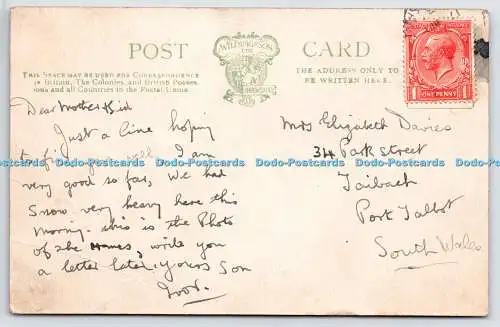 POST CARD
WILDT & SON LTD
THIS SPACE MAY BE USED FOR CORRESPONDENCE
in Britain, The Colonies, and British Posses-
ions and all Countries in the Postal Union.
THE ADDRESS ONLY TO
BE WRITTEN HERE.
ONE PENNY
Dear Mother & Sid
Just a line hoping
to find you well I am
very good so far, we had
Snow very heavy here this
morning. this is the Photo
of the , write you
a letter later. yours Son
Ivor.
Mrs Elizabeth Davies
34 Park Street
Taibach
Port Talbot
South Wales
Dodo-Postcards Dodo-Postcards Dodo-Postcards Dodo-Postcards Dodo-Postcards Dodo-Postcards